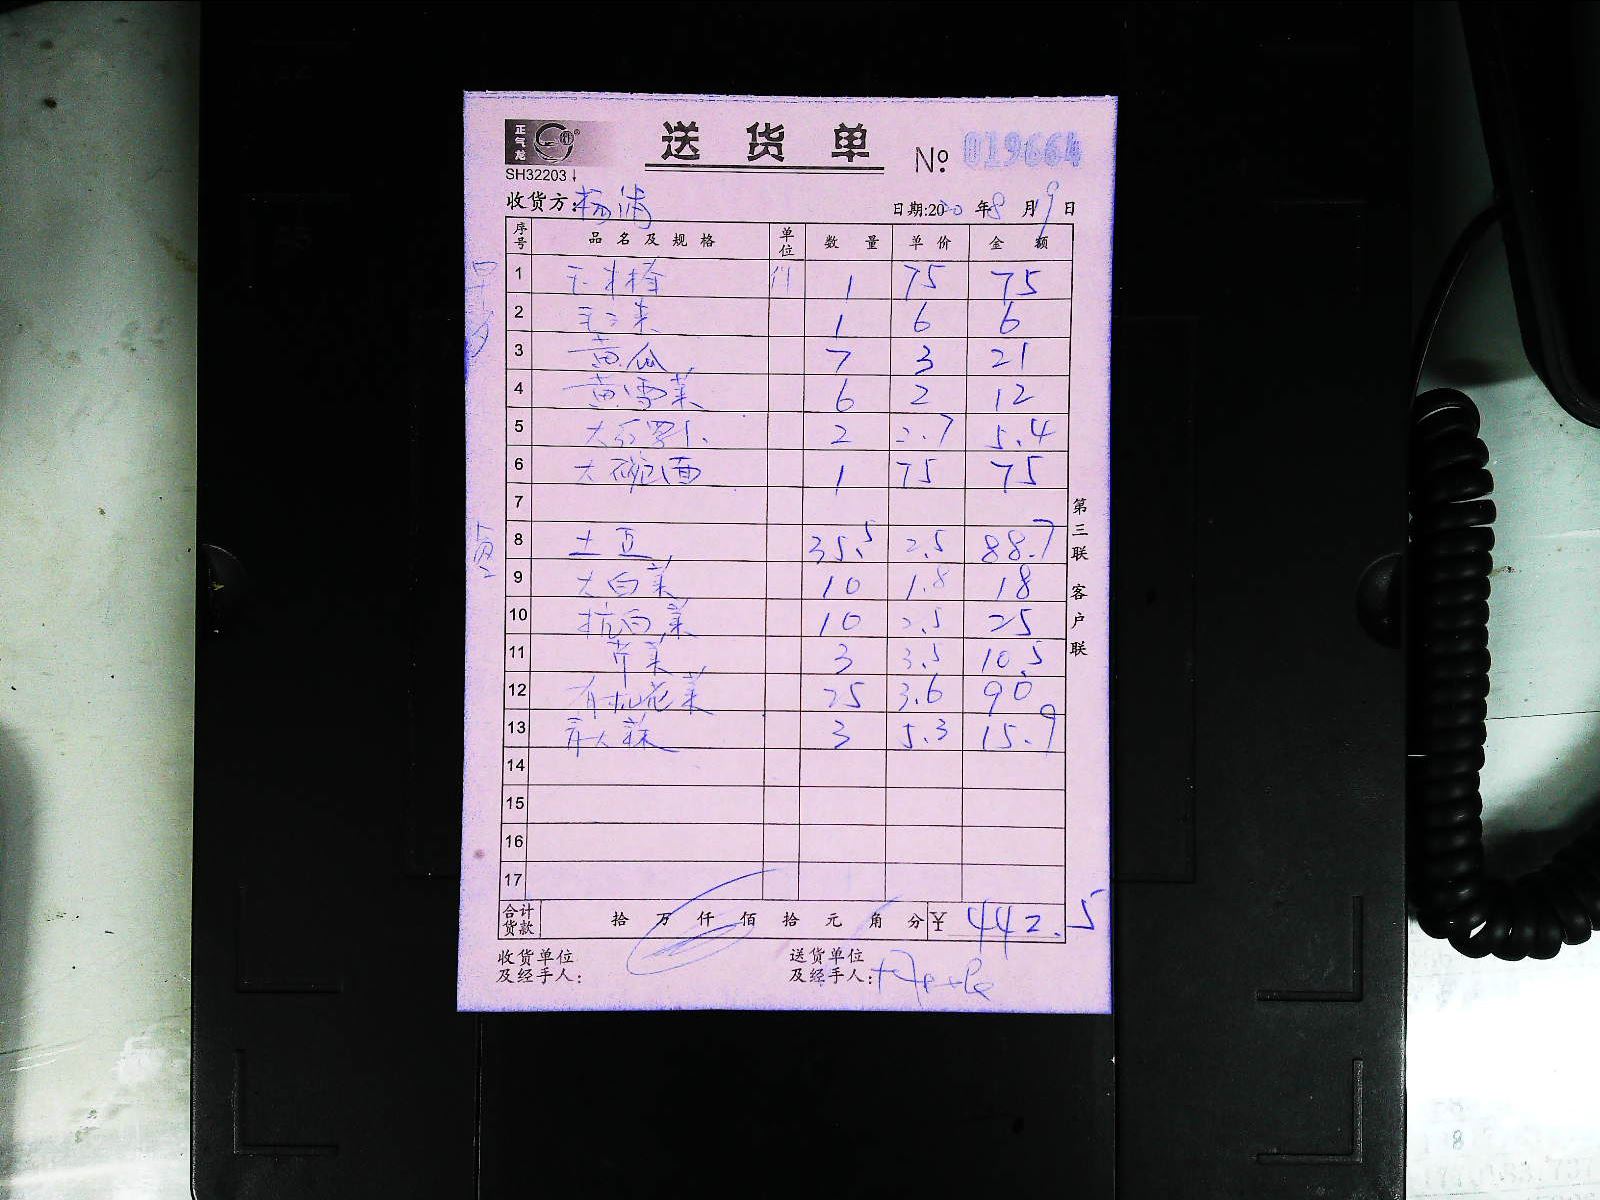 正气龙
送货单
SH32203
№ 019664
收货方: 杨浦 日期:2020年8月19日
序号 品名及规格 单位 数量 单价 金额
早夕
1 玉米棒 件 1 75 75
2 毛豆荚 1 6 6
3 黄瓜 7 3 21
4 黄雪菜 6 2 12
5 大红萝卜 2 2.7 5.4
6 大碗面 1 75 75
7
8 土豆 35.5 2.5 88.7
9 大白菜 10 1.8 18
10 杭白菜 10 2.5 25
11 芹菜 3 3.5 10.5
12 有机花菜 25 3.6 90
13 3 5.3 15.9
14
15
16
17
第三联 客户联
合计货款 拾 万 仟 佰 拾 元 角 分 ¥ 442.5
收货单位及经手人: 送货单位及经手人: